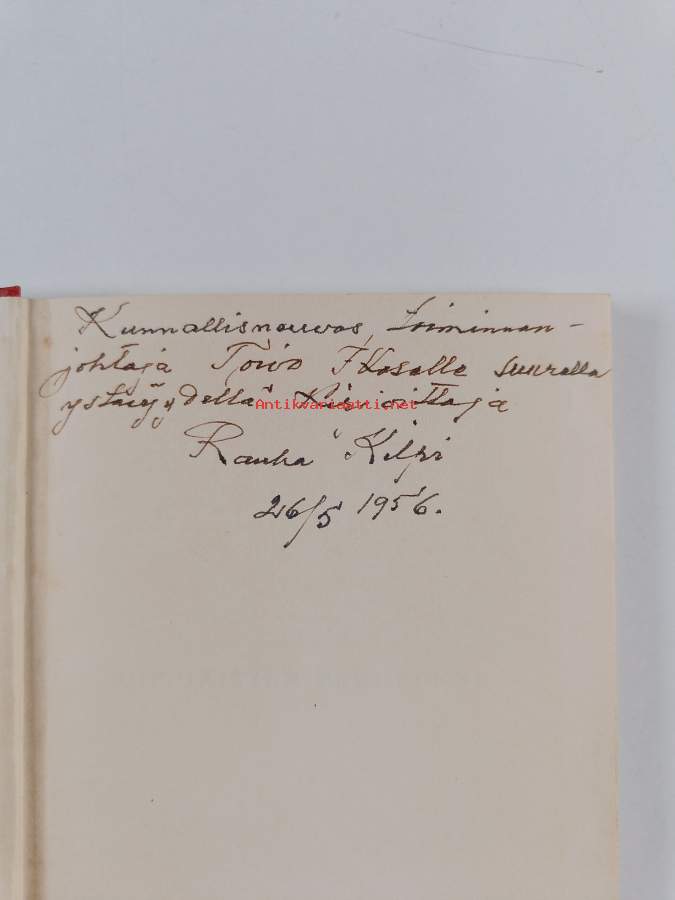 Kunnallisneuvos, toiminnan-
johtaja Toivo Ikoselle suurella
ystävyydellä kirjoittaja
Antikvariaatti.net
Rauha Kilpi
26/5 1956.